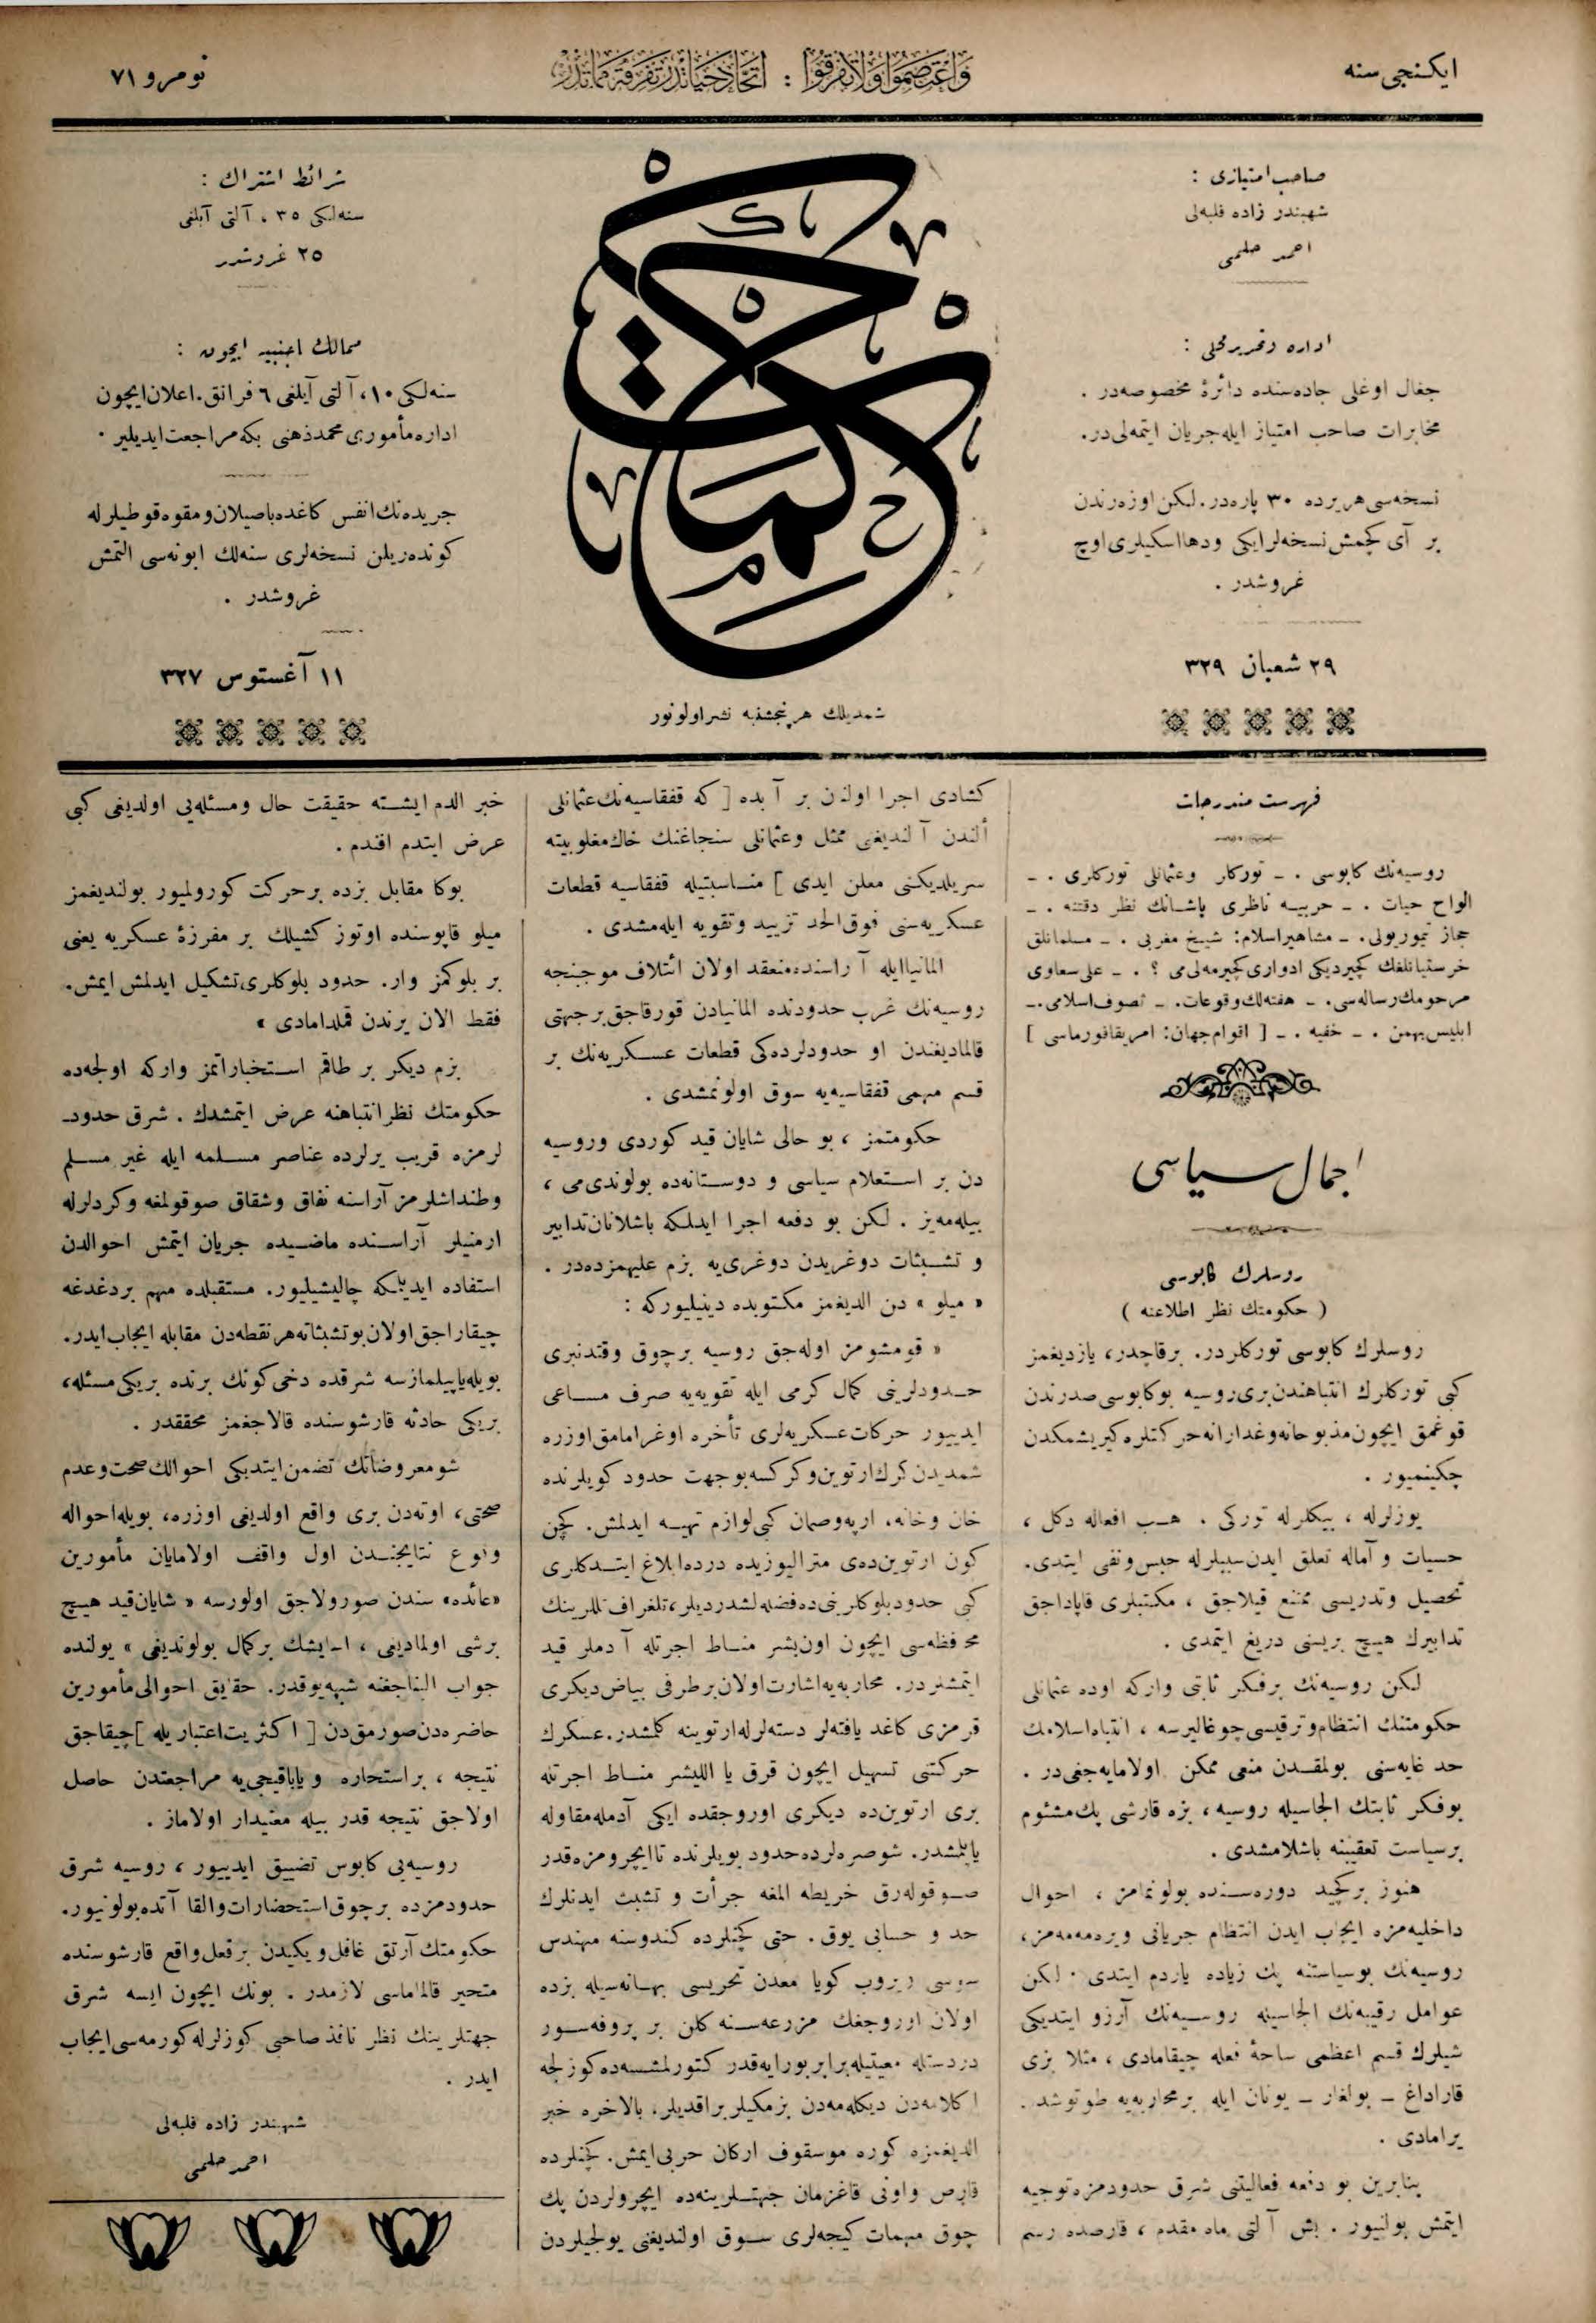 ايكنجی سنه
واعتصموا ولا تفرقوا : اتحاد حياتدر تفرقه مماتدر
نومرو ٧١
صاحب امتيازی :
شهبندر زاده فلبه‌لی
احمد حلمی
اداره و تحرير محلی :
جغال اوغلی جاده‌سنده دائرهٔ مخصوصه‌در .
مخابرات صاحب امتياز ايله جريان ايتمه‌لی‌در.
نسخه‌سی هر يرده ٣٠ پاره‌در. لكن اوزه‌رندن
بر آی كچمش نسخه‌لر ايكی ودها اسكيلری اوچ
غروشدر .
٢٩ شعبان ٣٢٩
حكمت
شمديلك هر پنجشنبه نشر اولونور
شرائط اشتراك :
سنه‌لكی ٣٥ ، آلتی آيلغی
٢٥ غروشدر
ممالك اجنبيه ايچون :
سنه‌لكی ١٠، آلتی آيلغی ٦ فرانق. اعلان ايچون
اداره مأموری محمد ذهنی بكه مراجعت ايديلير .
جريده‌نك انفس كاغده باصيلان ومقوه قوطيلرله
كونده‌ريلن نسخه‌لری سنه‌لك ابونه‌سی التمش
غروشدر .
١١ آغستوس ٣٢٧
فهرست مندرجات
روسيه‌نك كابوسی . ـ توركلر وعثمانلی توركلری . ـ
الواح حيات . ـ حربيه ناظری پاشانك نظر دقتنه . ـ
حجاز تيموريولی. ـ مشاهير اسلام: شيخ مغربی . ـ مسلمانلق
خرستيانلغك كچيرديكی ادواری كچيرمه‌لی‌می ؟ . ـ علی سعاوی
مرحومك رساله‌سی. ـ هفته‌لك وقوعات. ـ تصوف اسلامی. ـ
ابليس بهمن . ـ خفيه . ـ [ اقوام جهان: امريقا فورماسی ]
اجمال سياسی
روسلرك كابوسی
( حكومتك نظر اطلاعنه )
روسلرك كابوسی توركلردر. برقاچدر، يازديغمز
كبی توركلرك انتباهندن بری روسيه بو كابوسی صدرندن
قوغمق ايچون مذبوحانه وغدارانه حركتلره كيريشمكدن
چكينميور .
يوزلرله ، بيكلرله توركی . هـب افعاله دكل ،
حسيات و آماله تعلق ايدن سببلرله حبس ونفی ايتدی.
تحصيل وتدريسی ممتنع قيلاجق ، مكتبلری قاپاداجق
تدابيرك هيـچ بريسنی دريغ ايتمدی .
لكن روسيه‌نك برفكر ثابتی واركه اوده عثمانلی
حكومتنك انتظام وترقيسی چوغاليرسه ، انتباه اسلامك
حد غايه‌سنی بولمقـدن منعی ممكن اولامايه‌جغی‌در .
بوفكر ثابتك الجاسيله روسيه ، بزه قارشی پك مشئوم
برسياست تعقيبنه باشلامشدی .
هنوز بركچيد دوره‌سـنده بولونمامز ، احوال
داخليه‌مزه ايجاب ايدن انتظام جريانی ويرمه‌مه‌مز،
روسيه‌نك بوسياستنه پك زياده ياردم ايتدی . لكن
عوامل رقيبه‌نك الجاسيله روسـيه‌نك آرزو ايتديكی
شيلرك قسم اعظمی ساحهٔ فعله چيقامادی ، مثلا بزی
قاراداغ ـ بولغار ـ يونان ايله برمحاربه‌يه طوتوشد .
يرامادی .
بنابرين بو دفعه فعاليتنی شرق حدودمزه توجيه
ايتمش بولنيور . بش آلتی ماه مقدم ، قارصده رسم
كشادی اجرا اولنان بر آبده [ كه قفقاسيه‌نك عثمانلی
ألندن آلنديغنی ممثل وعثمانلی سنجاغنك خاك مغلوبيته
سريلديكنی معلن ايدی ] منـاسبتيله قفقاسيه قطعات
عسكريه‌سنی فوق الحد تزييد وتقويه ايله‌مشدی .
المانيا ايله آراسنده منعقد اولان ائتلاف موجبنجه
روسيه‌نك غرب حدودنده المانيادن قورقاجق برجهتی
قالماديغندن او حدودلرده‌كی قطعات عسـكريه‌نك بر
قسم مهمی قفقاسيه‌يه سوق اولونمشدی .
حكومتمز ، بو حالی شايان قيد كوردی وروسيه
دن بر اسـتعلام سياسی و دوسـتانه‌ده بولوندی‌می ،
بيله‌مه‌يز . لكن بو دفعه اجرا ايدلمكه باشلانان تدابير
و تشـبثات دوغريدن دوغری‌يه بزم عليهمزده‌در .
« ميلو » دن الديغمز مكتوبده دينيليوركه :
« قومشومز اوله‌جق روسيه برچوق وقتدنبری
حـدودلرينی كمال كرمی ايله تقويه‌يه صرف مسـاعی
ايدييور حركات عسكريه‌لری تأخره اوغرامامق اوزره
شمديدن كرك ارتوين و كركسه بوجهت حدود كويلرنده
خان وخانه، ارپه وصمان كبی لوازم تهيـه ايدلمش. كچن
كون ارتوين‌ده‌ی متراليوزيده درده ابلاغ ايتـدكلری
كبی حدود بلوكلرينی ده فضله لشدرديلر، تلغراف تللرينك
محافظه‌سی ايچون اون‌بشر منـاط اجرتله آدملر قيد
ايتمشلردر. محاربه‌يه اشارت اولان برطرفی بياض ديكری
قرمزی كاغد يافته‌لر دسته‌لرله ارتوينه كلمشدر. عسكرك
حركتنی تسهيل ايچون قرق يا الليشر منـاط اجرتله
بری ارتوين‌ده ديكری اوروجقده ايكی آدمله مقاوله
ياپلمشدر. شوصره‌لرده حدود بويلرنده تا ايچرومزه قدر
صـوقوله‌رق خريطه المغه جرأت و تشبث ايدنلرك
حد و حسابی يوق . حتی كچنلرده كندوسنه مهندس
سوسی ويروب كويا معدن تحريسی بهـانه‌سيله بزده
اولان اوروجغك مزرعه‌سـنه كلن بر پروفه‌سـور
دردستله معيتيله برابر بورايه‌قدر كتورلمشـسه‌ده كوزلجه
اكلامه‌دن ديكله‌مه‌دن بزمكيلر براقديلر، بالاخره خبر
الديغمزه كوره موسقوف اركان حربی ايمش. كچنلرده
قارص واونی قاغزمان جهتـلرينه‌ده ايچرولردن پك
چوق مهمات كيجه‌لری سـوق اولنديغنی يولجيلردن
خبر الدم ايشـته حقيقت حال ومسئله‌يی اولديغی كبی
عرض ايتدم افندم .
بوكا مقابل بزده برحركت كورولميور بولنديغمز
ميلو قاپوسنده اوتوز كشيلك بر مفرزهٔ عسكريه يعنی
بر بلوكمز وار. حدود بلوكلری تشكيل ايدلمش ايمش.
فقط الان يرندن قملدامادی »
بزم ديكر بر طاقم اسـتخباراتمز واركه اولجه‌ده
حكومتك نظر انتباهنه عرض ايتمشدك . شرق حدود‌ـ
لرمزه قريب يرلرده عناصر مسـلمه ايله غير مسـلم
وطنداشلرمز آراسنه نفاق وشقاق صوقولمغه وكردلرله
ارمنيلر آراسـنده ماضـيده جريان ايتمش احوالدن
استفاده ايديلمكه چاليشيليور. مستقبلده مهم بردغدغه
چيقاراجق اولان بوتشبثاته هر نقطه‌دن مقابله ايجاب ايدر.
بويله ياپيلمازسه شرقده دخی كونك برنده بريكی مسئله،
بريكی حادثه قارشوسنده قالاجغمز محققدر .
شو معروضاتك تضمن ايتديكی احوالك صحت وعدم
صحتی، اوته‌دن بری واقع اولديغی اوزره، بويله احواله
وقوع نتايجنـدن اول واقف اولامايان مأمورين
«عائده» سندن صورولاجق اولورسه « شايان قيد هيـچ
برشی اولماديغی ، آسايشك بركمال بولونديغی » يولنده
جواب الناجغنه شبهه يوقدر. حقايق احوالی مأمورين
حاضره‌دن صورمق‌دن [ اكثريت اعتباريله ] چيقاجق
نتيجه ، براستخاره ويا باقيجی‌يه مراجعتدن حاصل
اولاجق نتيجه قدر بيله مفيدار اولاماز .
روسيه‌يی كابوس تضييق ايدييور ، روسيه شرق
حدودمزده برچوق استحضارات والقا آتده بولونيور.
حكومتك آرتق غافل ويكيدن برفعل واقع قارشوسنده
متحير قالماماسی لازمدر . بونك ايچون ايسه شرق
جهتلرينك نظر نافذ صاحبی كوزلرله كورمه‌سی ايجاب
ايدر .
شهبندر زاده فلبه‌لی
احمد حلمی